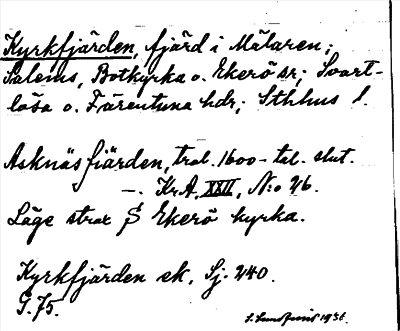 Kyrkfjärden, fjärd i Mälaren;
Salems, Botkyrka o. Ekerö sr; Svart-
lösa o. Färentuna hdr; Sthlms l.
Asknäsfjärden, trol. 1600-tal. slut.
—. Kr.A. XXII, N:o 26.
Läge strax S Ekerö kyrka.
Kyrkfjärden ek. Sj. 240.
G. 75.
1936.